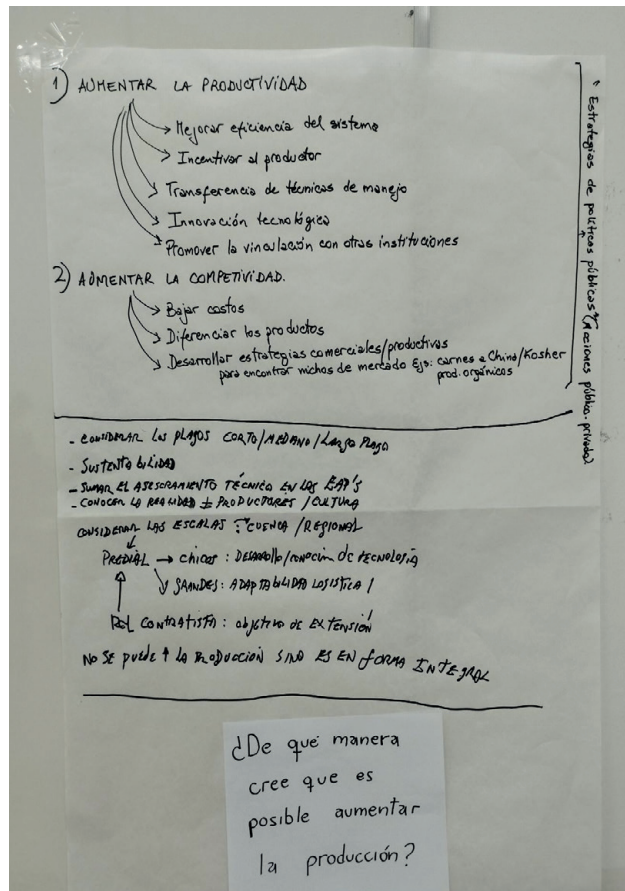 1) AUMENTAR LA PRODUCTIVIDAD
→ Mejorar eficiencia del sistema
→ Incentivar al productor
→ Transferencia de técnicas de manejo
→ Innovación tecnológica
→ Promover la vinculación con otras instituciones
2) AUMENTAR LA COMPETIVIDAD.
→ Bajar costos
→ Diferenciar los productos
→ Desarrollar estrategias comerciales/productivas
para encontrar nichos de mercado Ejs: carnes a China/Kosher
prod. orgánicos
" Estrategias de políticas públicas" (acciones público-privada)
- CONSIDERAR LOS PLAZOS CORTO/MEDIANO/LARGO PLAZO
- SUSTENTABILIDAD
- SUMAR EL ASESORAMIENTO TÉCNICO EN LAS EAP'S
- CONOCER LA REALIDAD ± PRODUCTORES / CULTURA
CONSIDERAR LAS ESCALAS : CUENCA / REGIONAL
PREDIAL → CHICOS : DESARROLLO/ DE TECNOLOGÍA
GRANDES : ADAPTABILIDAD LOGISTICA /
ROL CONTRATISTA : OBJETIVO DE EXTENSIÓN
NO SE PUEDE ↑ LA PRODUCCIÓN SINO ES EN FORMA INTEGRAL
¿De qué manera
cree que es
posible aumentar
la producción?